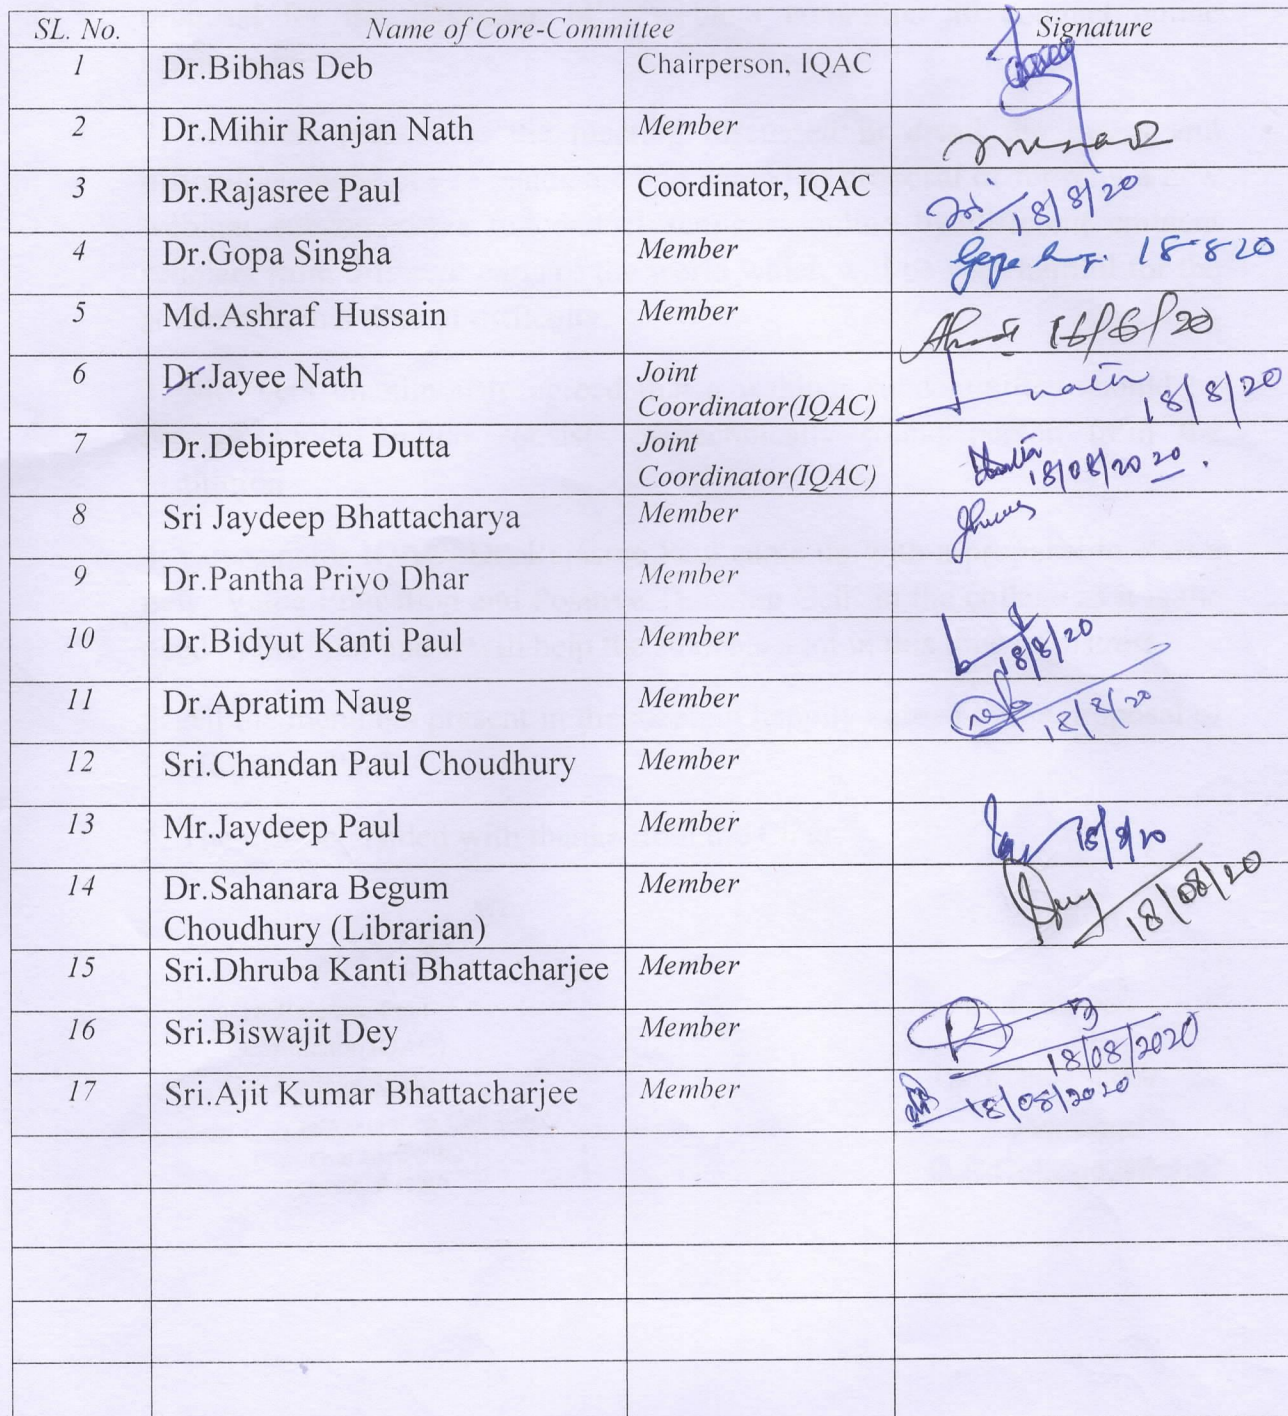 SL. No. Name of Core-Committee Signature
1 Dr.Bibhas Deb Chairperson, IQAC
2 Dr.Mihir Ranjan Nath Member
3 Dr.Rajasree Paul Coordinator, IQAC 18/8/20
4 Dr.Gopa Singha Member 18-8-20
5 Md.Ashraf Hussain Member
6 Dr.Jayee Nath Joint
Coordinator(IQAC) 18/8/20
7 Dr.Debipreeta Dutta Joint
Coordinator(IQAC) 18/08/2020.
8 Sri Jaydeep Bhattacharya Member
9 Dr.Pantha Priyo Dhar Member
10 Dr.Bidyut Kanti Paul Member 18/8/20
11 Dr.Apratim Naug Member 18/8/20
12 Sri.Chandan Paul Choudhury Member
13 Mr.Jaydeep Paul Member 18/8/20
14 Dr.Sahanara Begum Member 18/08/20
Choudhury (Librarian)
15 Sri.Dhruba Kanti Bhattacharjee Member
16 Sri.Biswajit Dey Member 18/08/2020
17 Sri.Ajit Kumar Bhattacharjee Member 18/08/2020